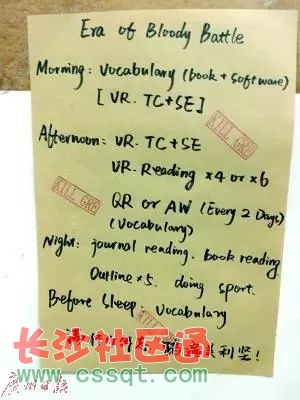 Era of Bloody Battle
Morning: Vocabulary (book + software)
[VR. TC+SE]
Afternoon: VR. TC+SE
VR. Reading ×4 or ×6
KILL GRE
KILL GRE
QR or AW (Every 2 Days)
(Vocabulary)
Night: journal reading. book reading
Outline ×5. doing sport.
Before Sleep. Vocabulary
KILL
利坚!
长沙社区通
www.cssqt.com
广州日报